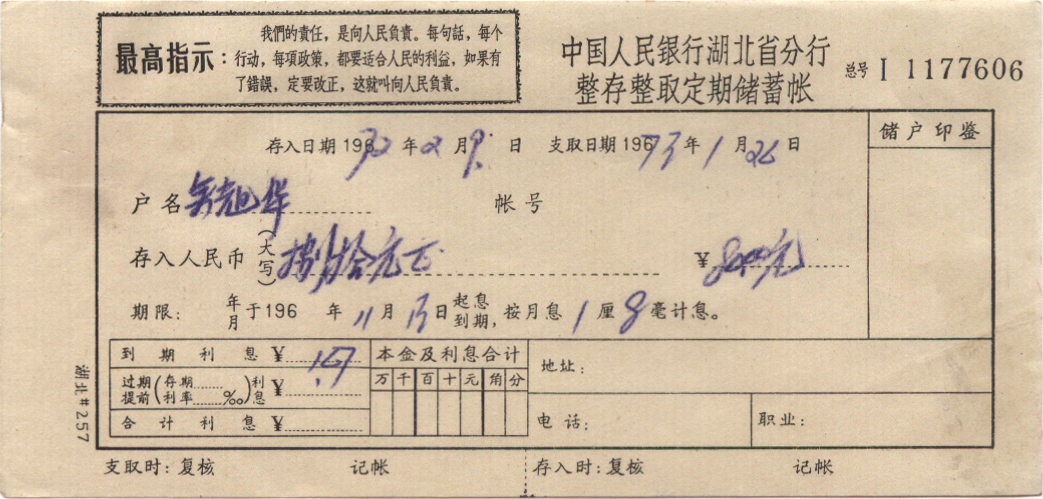 最高指示：
我們的責任，是向人民負責。每句話，每个
行动，每項政策，都要适合人民的利益，如果有
了錯誤，定要改正，这就叫向人民負責。
中国人民银行湖北省分行
整存整取定期储蓄帐
总号 I 1177606
存入日期 196 72 年 2 月 9 日 支取日期 196 73 年 1 月 26 日
储户印鉴
户名 帐号
存入人民币（大写）捌拾元正 ¥
期限： 年月于196 年 11 月 日起息到期，按月息 1 厘 8 毫计息。
到期利息 ¥
本金及利息合计
过期提前（存期 利率 ‰）利息 ¥
万 千 百 十 元 角 分
合计利息 ¥
地址：
电话：
职业：
湖北#257
支取时：复核 记帐 存入时：复核 记帐